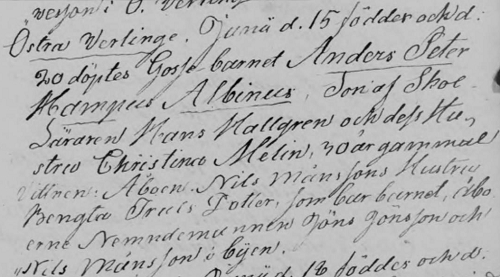 "versson i Ö. Verling
Östra Verlinge. Junii d. 15 föddes och d:
20 döptes Gosse barnet Anders Peter
Hampus Albinus, Son af Skoe-
Läraren Hans Hallgren och dess Hu-
stru Christina Melin, 30 år gammal
Vittnen: Åboen Nils Månssons Hustru
Bengta Truls Dotter, som bar barnet, åbo
erne Nemndemannen Jöns Jonsson och
"Nils Månsson i byen.
Junii d. 18 föddes och d: